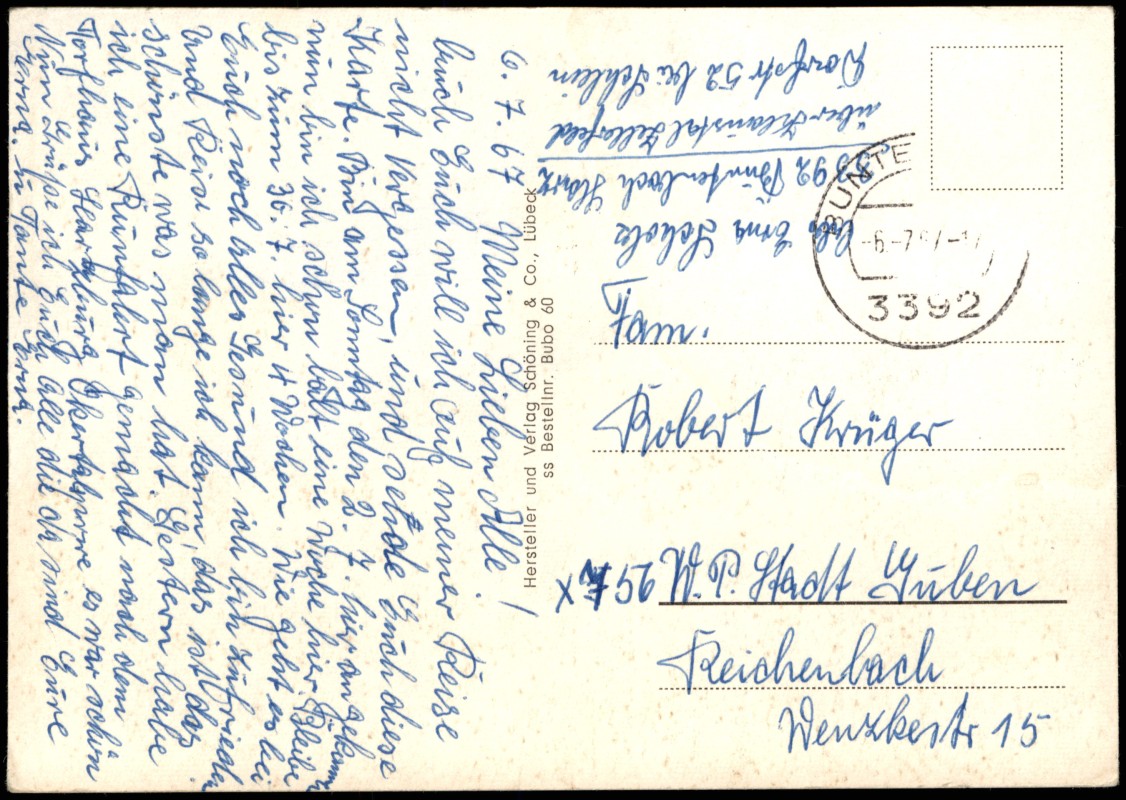 6. 7. 67
Meine Lieben Alle!
Auch Euch will ich auf meiner Reise
nicht vergessen, und sende Euch diese
Karte. Bin am Sonntag den 2. 7. hier angekomm
nun bin ich schon balt eine Woche hier. Bleibe
bis zum 30. 7. hier 4 Wochen. Wie geht es bei
Euch noch alles Gesund ich bin zufrieden
und Reise so lange ich kann das ist das
schönste was man hat. Gestern habe
ich eine Rundfahrt gemacht nach dem
Torfhaus Harzburg Okertalsperre es war schön
Nun Grüße ich Euch alle die da sind Eure
Erna. u Tante Erna.
Hersteller und Verlag Schöning & Co., Lübeck
ss Bestellnr. Bubo 60
Abs Erna Scholz
3392 Buntenbock Harz
über Klaustal Zellerfeld
Dorfstr 52 bei
BUNTE
-6.-7.67-
3392
Fam.
Robert Krüger
X 75 W. P. Stadt Guben
Reichenbach
Wenzkestr 15